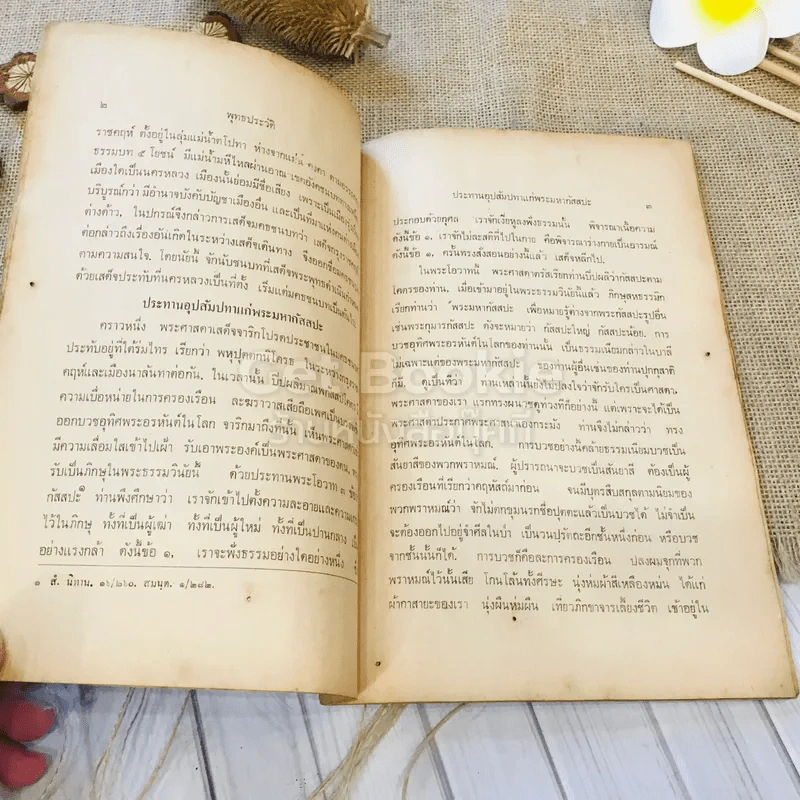 ๒
พุทธประวัติ
ราชคฤห์ ตั้งอยู่ในลุ่มแม่น้ำตโปทา ห่างจากแม่น้ำ คงคา ตาม
ธรรมบท ๕ โยชน์ มีแม่น้ำมหีไหลผ่าน
เมืองใดเป็นนครหลวง เมืองนั้นย่อมมีชื่อเสียง เพราะเป็นเมือง
บริบูรณ์กว่า มีอำนาจบังคับบัญชาเมืองอื่น และเป็นที่มาแห่งคน
ต่างด้าว, ในปกรณ์จึงกล่าวการเสด็จมคธชนบทว่า เสด็จกรุงราชคฤห์
ต่อกล่าวถึงเรื่องอันเกิดในระหว่างเสด็จเดินทาง จึงออกชื่อมคธชนบท
ตามความสนใจ. โดยนัยนี้ จักนับชนบทที่เสด็จพระพุทธดำเนิน
ด้วยเสด็จประทับที่นครหลวงเป็นที่ตั้ง เริ่มแต่มคธชนบทเป็นต้นไป
ประทานอุปสัมปทาแก่พระมหากัสสปะ
คราวหนึ่ง พระศาสดาเสด็จจาริกโปรดประชาชนในมคธชนบท
ประทับอยู่ที่ใต้ร่มไทร เรียกว่า พหุปุตตกนิโครธ ในระหว่างกรุงราช
คฤห์และเมืองนาลันทาต่อกัน. ในเวลานั้น ปิปผลิมาณพกัสสปโคตร มี
ความเบื่อหน่ายในการครองเรือน ละฆราวาสเสียถือเพศเป็นบรรพชิต
ออกบวชอุทิศพระอรหันต์ในโลก จาริกมาถึงที่นั้น เห็นพระศาสดา
มีความเลื่อมใสเข้าไปเฝ้า รับเอาพระองค์เป็นพระศาสดาของตน, ทรง
รับเป็นภิกษุในพระธรรมวินัยนี้ ด้วยประทานพระโอวาท ๓ ข้อว่า
กัสสปะ๑ ท่านพึงศึกษาว่า เราจักเข้าไปตั้งความละอายและความเกรง
ไว้ในภิกษุ ทั้งที่เป็นผู้เฒ่า ทั้งที่เป็นผู้ใหม่ ทั้งที่เป็นปานกลาง เป็น
อย่างแรงกล้า ดังนี้ข้อ ๑, เราจะฟังธรรมอย่างใดอย่างหนึ่ง ซึ่ง
๑ สํ. นิทาน. ๑๖/๒๖๐. สมนฺต. ๑/๒๘๒.
ประทานอุปสัมปทาแก่พระมหากัสสปะ
๓
ประกอบด้วยกุศล เราจักเงี่ยหูลงฟังธรรมนั้น พิจารณาเนื้อความ
ดังนี้ข้อ ๑, เราจักไม่ละสติที่ไปในกาย คือพิจารณาร่างกายเป็นอารมณ์
ดังนี้ข้อ ๑, ครั้นทรงสั่งสอนอย่างนี้แล้ว เสด็จหลีกไป.
ในพระโอวาทนี้ พระศาสดาตรัสเรียกท่านปิปผลิว่ากัสสปะตาม
โคตรของท่าน, เมื่อเข้ามาอยู่ในพระธรรมวินัยนี้แล้ว ภิกษุสหธรรมิก
เรียกท่านว่า พระมหากัสสปะ เพื่อหมายรู้ต่างจากพระกัสสปะรูปอื่น
เช่นพระกุมารกัสสปะ ดังจะหมายว่า กัสสปะใหญ่ กัสสปะน้อย. การ
บวชอุทิศพระอรหันต์ในโลกของท่านนั้น, เป็นธรรมเนียมกล่าวในบาลี
ไม่เฉพาะแต่ของพระมหากัสสปะ ของท่านผู้อื่นเช่นของท่านปุกกุสาติ
ก็มี. ดูเป็นทีว่า ท่านเหล่านั้นยังไม่ปลงใจว่าจักรับใครเป็นศาสดา,
พระศาสดาของเรา แรกทรงผนวชดูท่วงทีก็อย่างนี้ แต่เพราะจะได้เป็น
พระศาสดาประกาศพระศาสนาเองกระมัง ท่านจึงไม่กล่าวว่า ทรง
อุทิศพระอรหันต์ในโลก. การบวชอย่างนี้คล้ายธรรมเนียมบวชเป็น
สันยาสีของพวกพราหมณ์. ผู้ปรารถนาจะบวชเป็นสันยาสี ต้องเป็นผู้
ครองเรือนที่เรียกว่าคฤหัสถ์มาก่อน จนมีบุตรสืบสกุลตามนิยมของ
พวกพราหมณ์ว่า จักไม่ตกขุมนรกชื่อปุตตะแล้วเป็นบวชได้ ไม่จำเป็น
จะต้องออกไปอยู่จำศีลในป่า เป็นวนปรัตถะอีกชั้นหนึ่งก่อน หรือบวช
จากชั้นนั้นก็ได้. การบวชก็คือละการครองเรือน ปลงผมจุกที่พวก
พราหมณ์ไว้นั้นเสีย โกนโล้นทั้งศีรษะ นุ่งห่มผ้าสีเหลืองหม่น ได้แก่
ผ้ากาสายะของเรา นุ่งผืนห่มผืน เที่ยวภิกขาจารเลี้ยงชีวิต เข้าอยู่ใน
Get Bookie